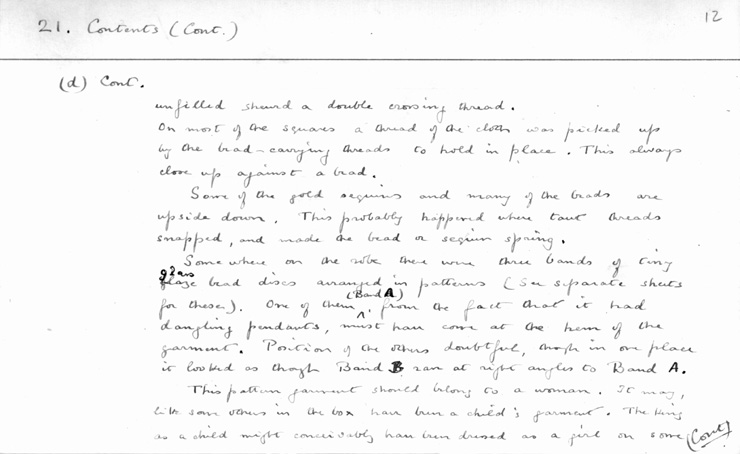 12
21. Contents (Cont.)
(d) Cont.
unfilled showed a double crossing thread.
On most of the squares a thread of the cloth was picked up
by the bead-carrying threads to hold in place. This always
close up against a bead.
Some of the gold sequins and many of the beads are
upside down. This probably happened where taut threads
snapped, and made the bead or sequin spring.
Somewhere on the robe there were three bands of tiny
glass bead discs arranged in patterns (See separate sheets
for these). One of them (Band A), from the fact that it had
dangling pendants, must have come at the hem of the
garment. Position of the others doubtful, though in one place
it looked as though Band B ran at right angles to Band A.
This pattern garment should belong to a woman. It may,
like some others in the box have been a child's garment. The King
as a child might conceivably have been dressed as a girl on some
(Cont)